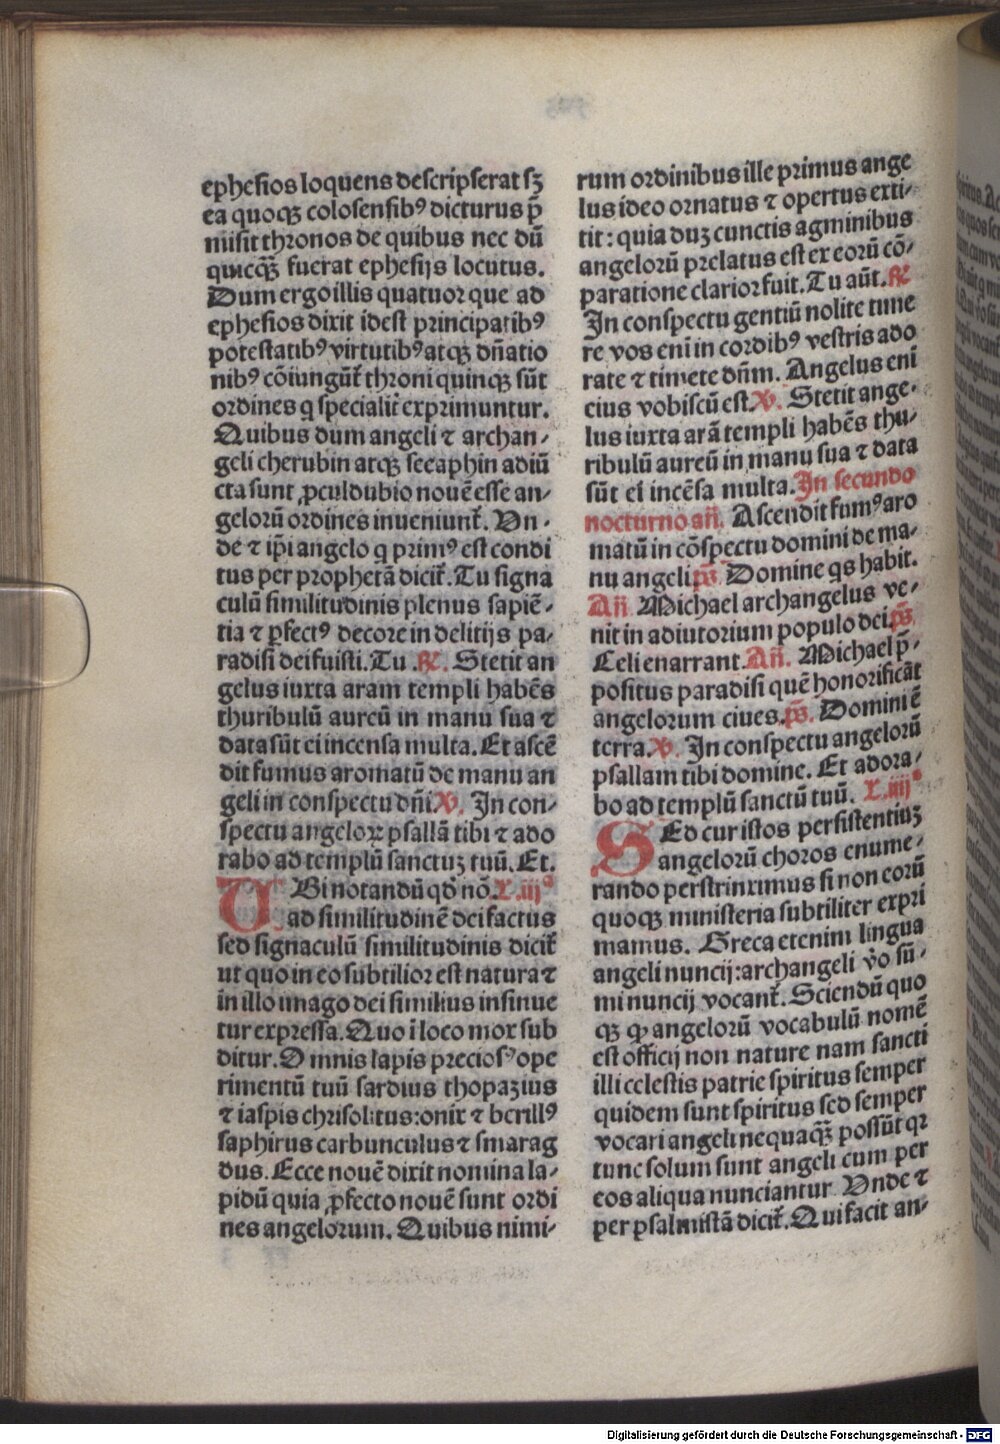 ephesios loquens descripserat sꝫ
ea quoqꝫ colosensibꝰ dicturus p̄
misit thronos de quibus nec dū
quicqꝫ̄ fuerat ephesijs locutus.
Dum ergo illis quatuor que ad
ephesios dixit idest principatibꝰ
potestatibꝰ virtutibꝰ atqꝫ dn̄atio
nibꝰ cōiungūt᷑ throni quinqꝫ sūt
ordines q specialit᷑ exprimuntur.
Quibus dum angeli ⁊ archan-
geli cherubin atqꝫ seeaphin adiū
cta sunt ꝓculdubio nouē esse an-
gelorū ordines inueniunt᷑. Vn-
de ⁊ ip̄i angelo q primꝰ est condi
tus per prophetā dicit᷑. Tu signa
culū similitudinis plenus sapiē-
tia ⁊ ꝑfectꝰ decore in delitijs pa-
radisi dei fuisti. Tu. R̷. Stetit an
gelus iuxta aram templi habēs
thuribulū aureū in manu sua ⁊
data sūt ei incensa multa. Et ascē
dit fumus aromatū de manu an
geli in conspectu dn̄i. V̷. In con-
spectu angeloꝝ psallā tibi ⁊ ado
rabo ad templū sanctuꝫ tuū. Et.
VBi notandū qd̄ nō. L. iijᵃ
ad similitudinē dei factus
sed signaculū similitudinis dicit᷑
ut quo in eo subtilior est natura ⁊
in illo imago dei similius insinue
tur expressa. Quo ī loco mox sub
ditur. Omnis lapis preciosꝰ ope
rimentū tuū sardius thopazius
⁊ iaspis chrisolitus: onix ⁊ berillꝰ
saphirus carbunculus ⁊ smarag
dus. Ecce nouē dixit nomina la-
pidū quia ꝓfecto nouē sunt ordi
nes angelorum. Quibus nimi-
rum ordinibus ille primus ange
lus ideo ornatus ⁊ opertus exti-
tit: quia duꝫ cunctis agminibus
angelorū prelatus est ex eorū cō-
paratione clarior fuit. Tu aūt. R̷
In conspectu gentiū nolite time
re vos enī in cordibꝰ vestris ado
rate ⁊ timete dn̄m. Angelus enī
eius vobiscū est. V̷. Stetit ange-
lus iuxta arā templi habēs thu-
ribulū aureū in manu sua ⁊ data
sūt ei incēsa multa. In secundo
nocturno an̄. Ascendit fumꝰ aro
matū in cōspectu domini de ma-
nu angeli. ps̄. Domine qs habit.
An̄. Michael archangelus ve-
nit in adiutorium populo dei. ps̄.
Celi enarrant. An̄. Michael p̄-
positus paradisi quē honorificāt
angelorum ciues. ps̄. Domini ē
terra. V̷. In conspectu angelorū
psallam tibi domine. Et adora-
bo ad templū sanctū tuū. L. iiijᵃ
SEd cur istos persistentiuꝫ
angelorū choros enume-
rando perstrinximus si non eorū
quoqꝫ ministeria subtiliter expri
mamus. Greca etenim lingua
angeli nuncij: archangeli v̊o sū-
mi nuncij vocant᷑. Sciendū quo
qꝫ ꝙ angelorū vocabulū nomē
est officij non nature nam sancti
illi celestis patrie spiritus semper
quidem sunt spiritus sed semper
vocari angeli nequaqꝫ̄ possūt qr
tunc solum sunt angeli cum per
eos aliqua nunciantur. Vnde ⁊
per psalmistā dicit᷑. Qui facit an-
Digitalisierung gefördert durch die Deutsche Forschungsgemeinschaft - DFG